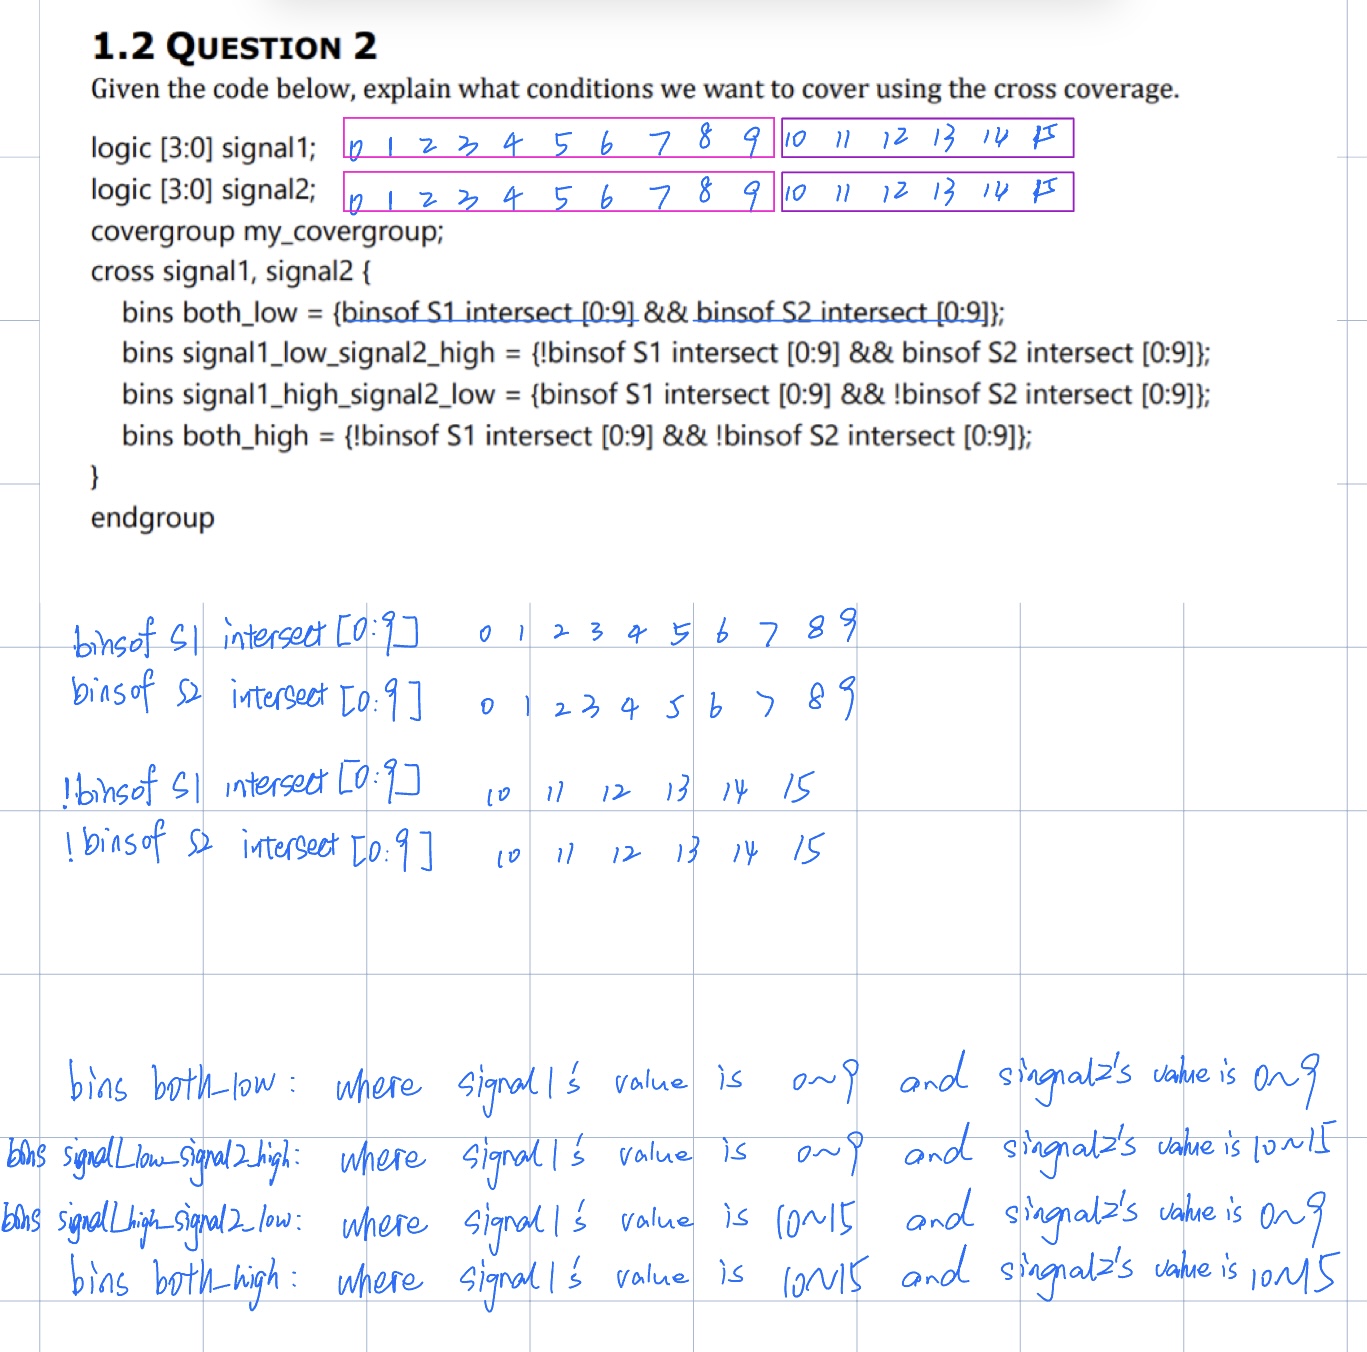 1.2 QUESTION 2
Given the code below, explain what conditions we want to cover using the cross coverage.
logic [3:0] signal1; 0 1 2 3 4 5 6 7 8 9 10 11 12 13 14 15
logic [3:0] signal2; 0 1 2 3 4 5 6 7 8 9 10 11 12 13 14 15
covergroup my_covergroup;
cross signal1, signal2 {
bins both_low = {binsof S1 intersect [0:9] && binsof S2 intersect [0:9]};
bins signal1_low_signal2_high = {!binsof S1 intersect [0:9] && binsof S2 intersect [0:9]};
bins signal1_high_signal2_low = {binsof S1 intersect [0:9] && !binsof S2 intersect [0:9]};
bins both_high = {!binsof S1 intersect [0:9] && !binsof S2 intersect [0:9]};
}
endgroup
binsof S1 intersect [0:9] 0 1 2 3 4 5 6 7 8 9
binsof S2 intersect [0:9] 0 1 2 3 4 5 6 7 8 9
!binsof S1 intersect [0:9] 10 11 12 13 14 15
!binsof S2 intersect [0:9] 10 11 12 13 14 15
bins both_low: where signal1's value is 0~9 and singnal2's value is 0~9
bins signal1_low_signal2_high: where signal1's value is 0~9 and singnal2's value is 10~15
bins signal1_high_signal2_low: where signal1's value is 10~15 and singnal2's value is 0~9
bins both_high: where signal1's value is 10~15 and singnal2's value is 10~15